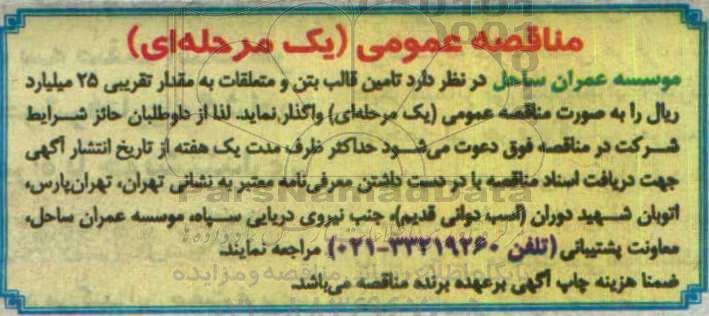 مناقصه عمومی (یک مرحله‌ای)
موسسه عمران ساحل در نظر دارد تامین قالب بتن و متعلقات به مقدار تقریبی ۲۵ میلیارد
ریال را به صورت مناقصه عمومی (یک مرحله‌ای) واگذار نماید. لذا از داوطلبان حائز شرایط
شرکت در مناقصه فوق دعوت می‌شود حداکثر ظرف مدت یک هفته از تاریخ انتشار آگهی
جهت دریافت اسناد مناقصه با در دست داشتن معرفی‌نامه معتبر به نشانی تهران، تهران‌پارس،
اتوبان شهید دوران (اسب دوانی قدیم)، جنب نیروی دریایی سپاه، موسسه عمران ساحل،
معاونت پشتیبانی (تلفن ۳۳۲۱۹۲۶۰-۰۲۱) مراجعه نمایند.
ضمنا هزینه چاپ آگهی برعهده برنده مناقصه می‌باشد.
ParsNamadData